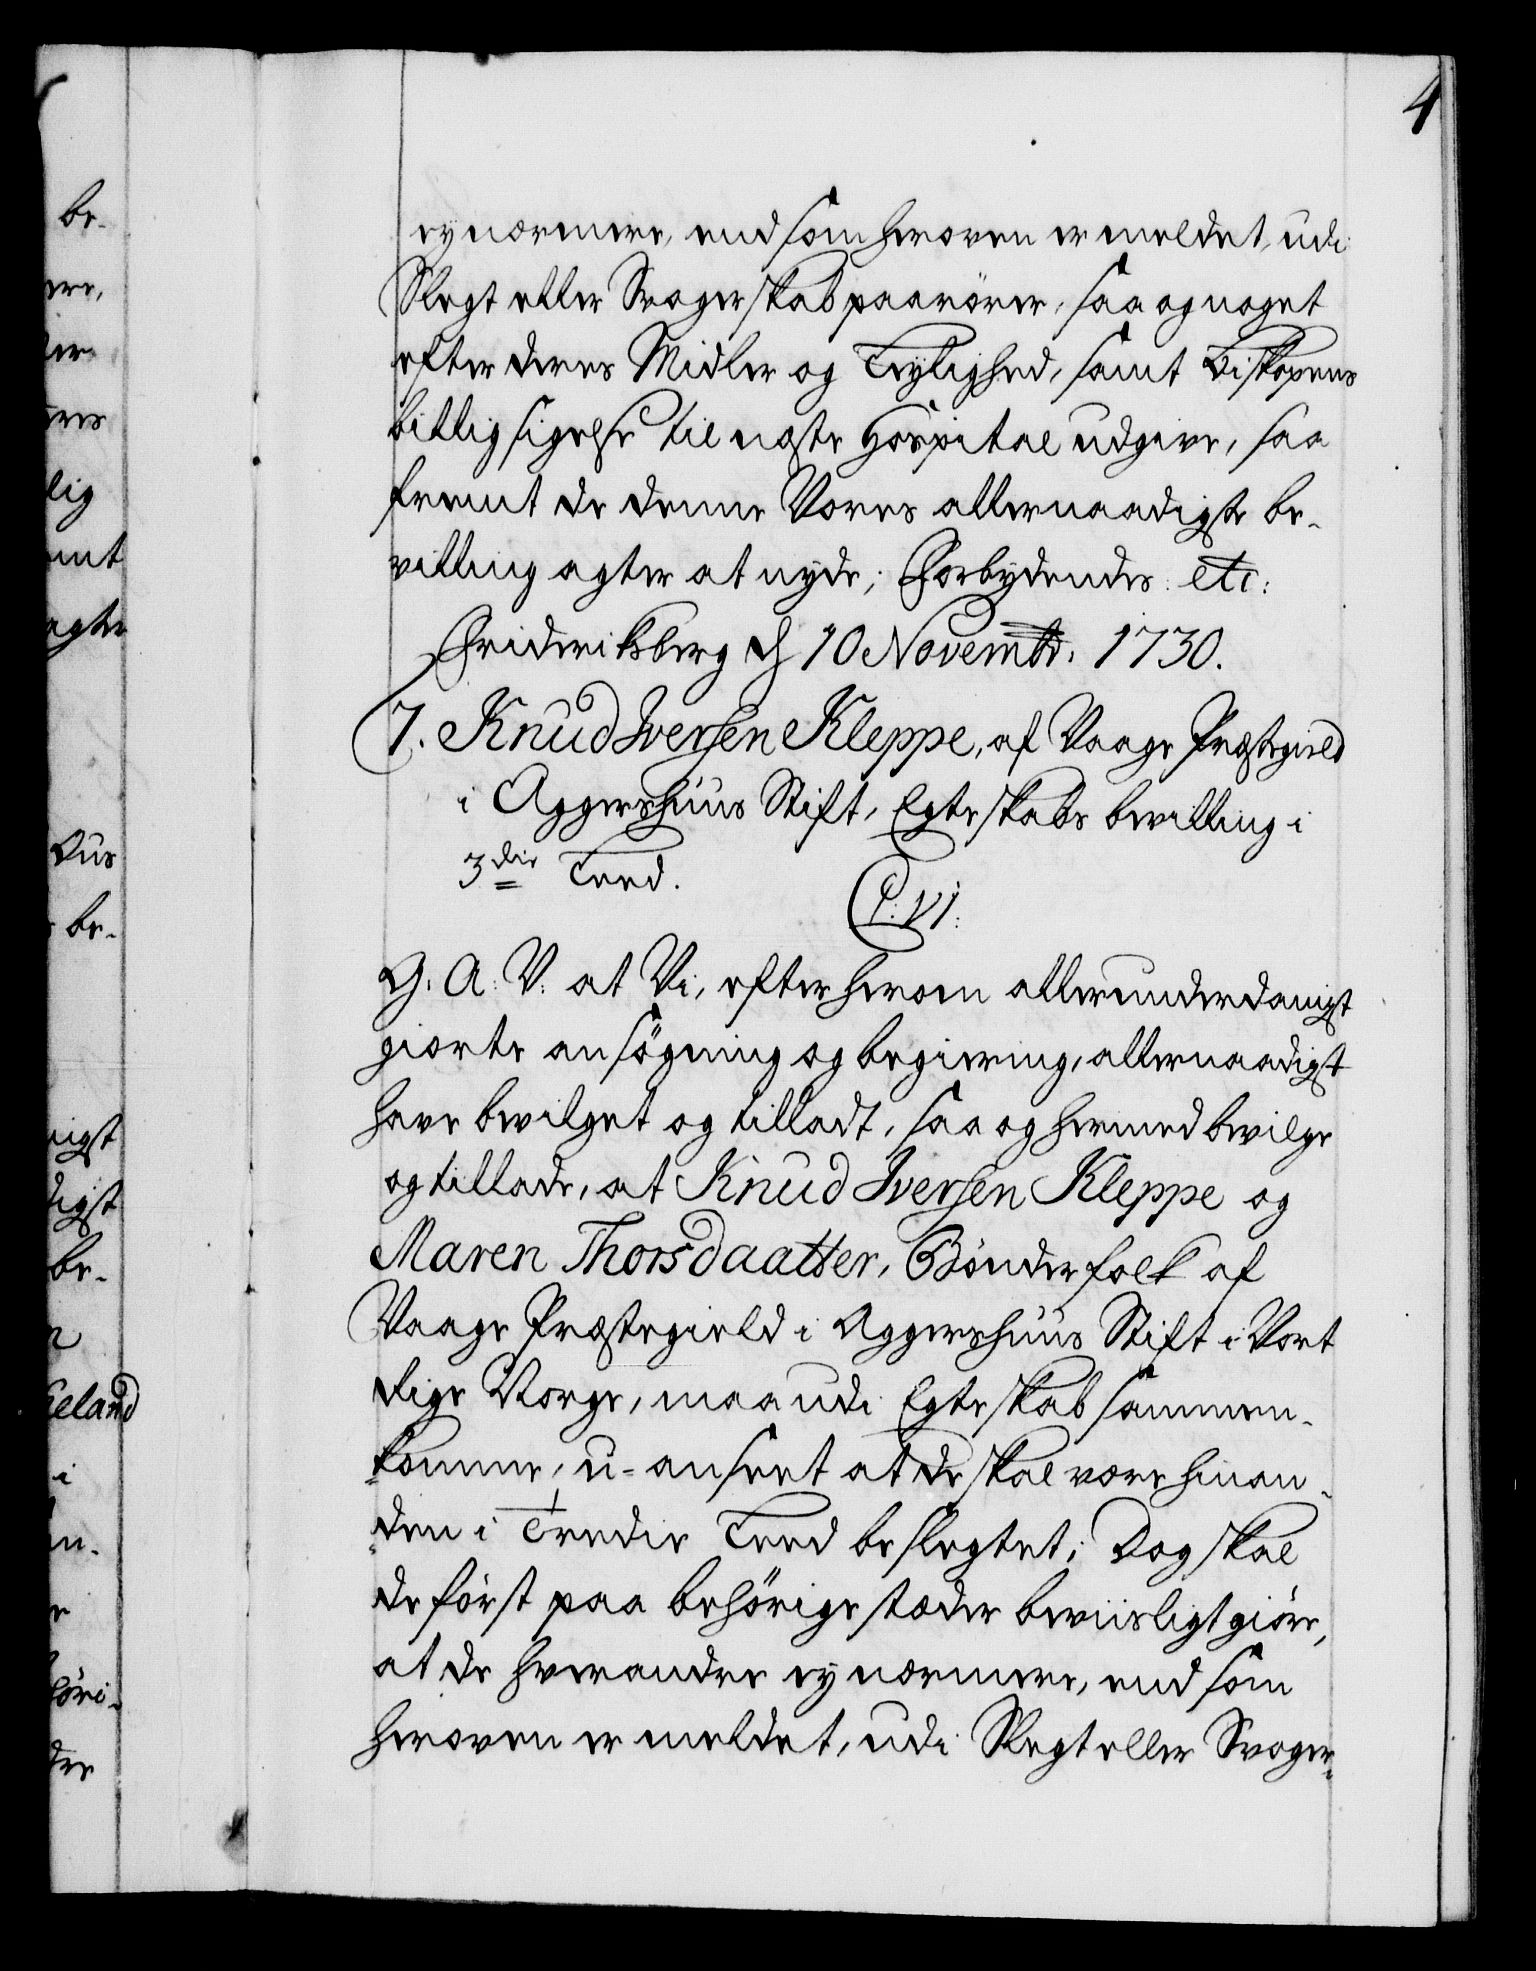 4
ey nærmere, end som heroven er meldet, udi
Slegt eller Svogerskab paarörer, saa og noget
efter deres Midler og Leylighed, samt Biskopens
billig sigelse til neste Hospital udgive, saa
fremt de denne Vores allernaadigste be-
villing agter at nyde; Forbydendes etc:
Friderichsberg d 10 Novembr: 1730.
7. Knud Iversen Kleppe, af Vaage Præstegield
i Aggershuus Stift, Egteskabs bevilling i
3die Leed.
C: VI:
G: A: V: at Vi, efter herom allerunderdanigst
giorte ansögning og begiering, allernaadigst
have bevilget og tilladt, saa og hermed bevilge
og tillade, at Knud Iversen Kleppe og
Maren Thorsdaatter, Bönderfolk af
Vaage Præstegield i Aggershuus Stift i Vort
Rige Norge, maa udi Egteskab sammen-
komme, u-anseet at de skal være hinan-
den i Tredie Leed beslegtet; Dog skal
de först paa behörige stæder beviisligt giöre,
at de hverandre ey nærmere, end som
heroven er meldet, udi Slegt eller Svoger-